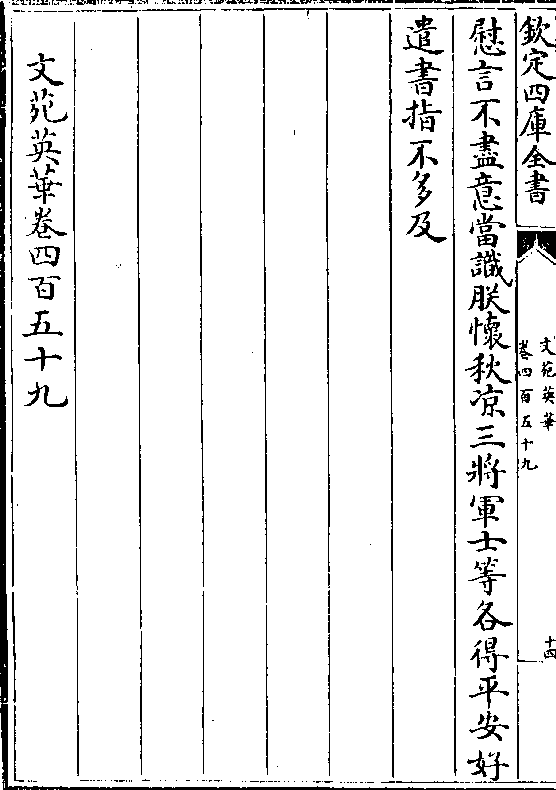 欽定四庫全書
文苑英華
卷四百五十九
十四
慰言不盡意當識朕懷秋凉三將軍士等各得平安好
遣書指不多及
文苑英華卷四百五十九